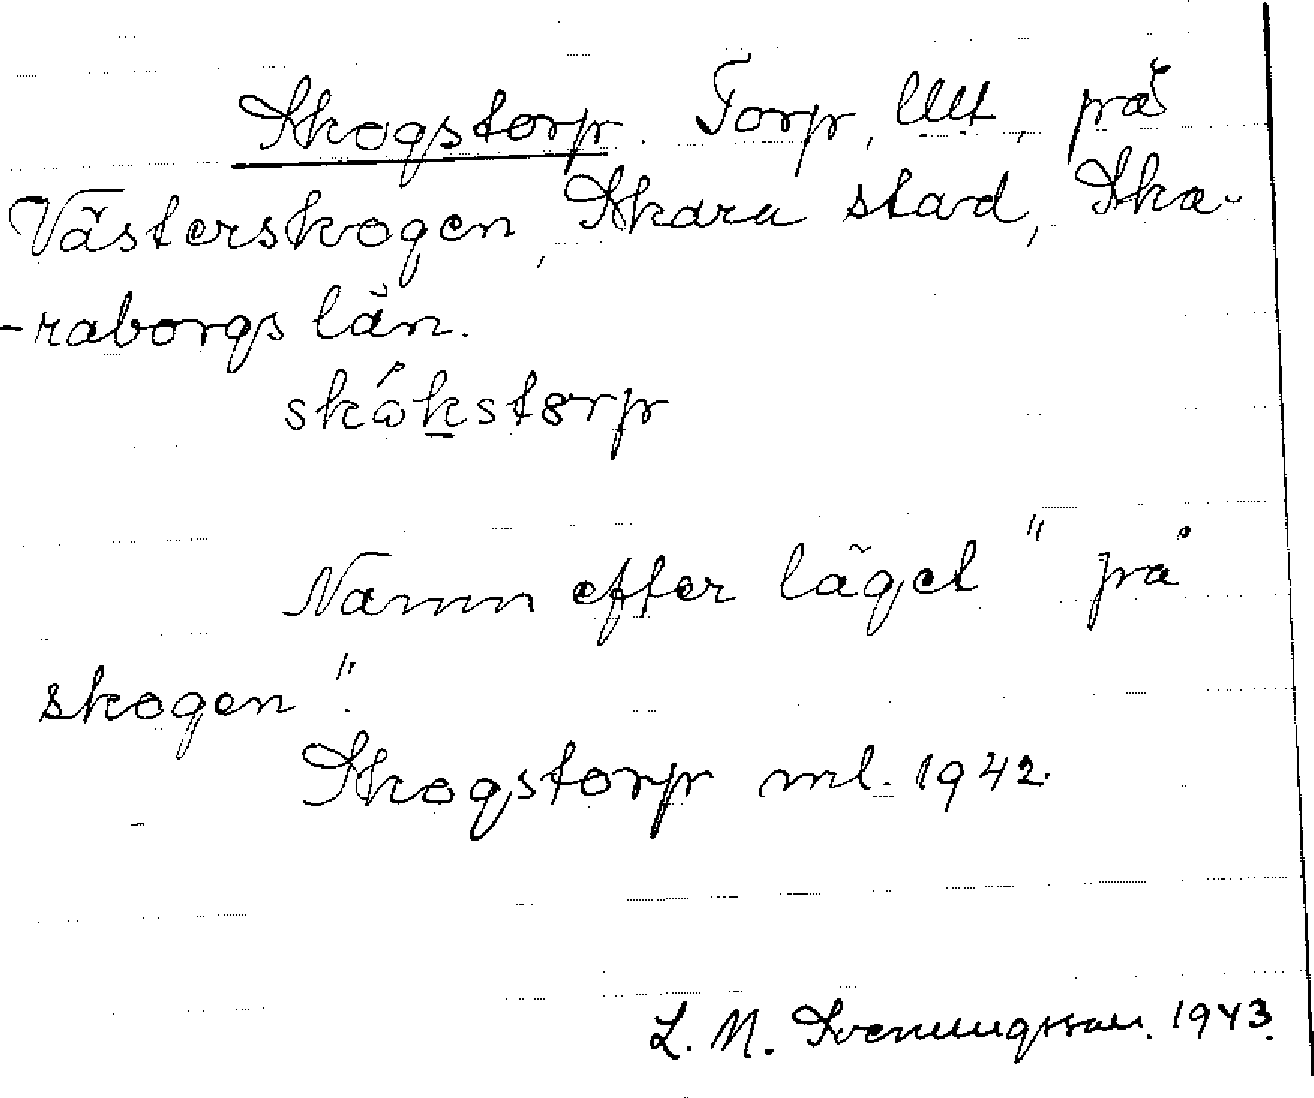 Skogstorp. Torp, Utt, på
Västerskogen, Skara stad, Ska-
-raborgs län.
skókstorp
Namn efter läget "på
skogen".
Skogstorp ml. 1942.
L. N. Svenungsson. 1943.